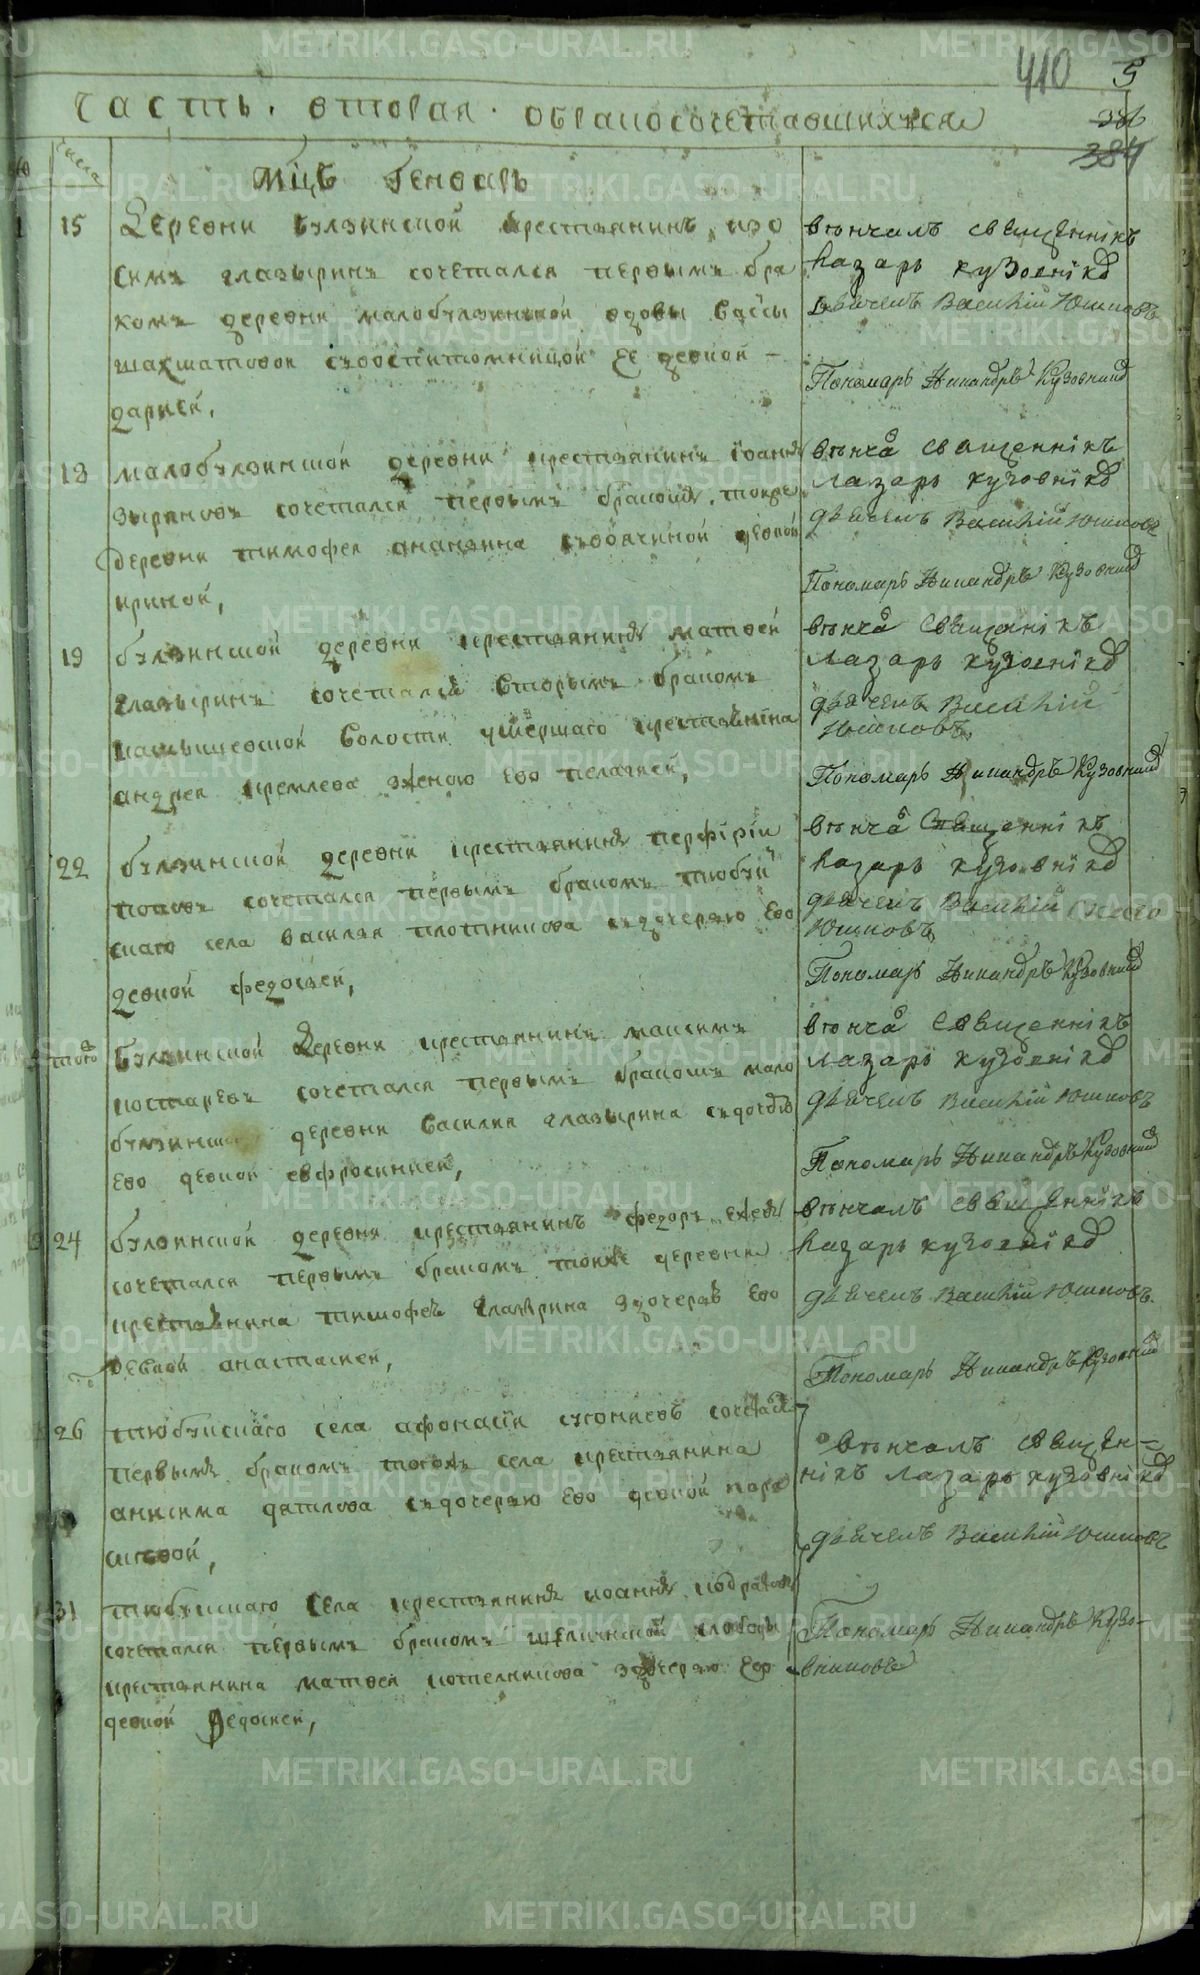 410 5
часть. вторая. обракосочетавшихся
384
числа
Мцъ Генварь
1 15 Деревни булзинской крестьянинъ изо
симъ глазыринъ сочетался первымъ бра
комъ деревни малобулзинской вдовы вассы
шахматовой свостпитомницой ее девкой -
дарьей,
венчалъ священникъ
Лазарь кузовниковъ
дьячекъ Василий Юшковъ
Пономарь Никандръ Кузовников
18 малобулзинской деревни крестьянинъ Iоаннъ
зыряновъ сочетался первымъ бракомъ тоя же
деревни тимофея ананьина свояченой девкой
ириной,
венчал священникъ
лазарь кузовников
дьячекъ Василий Юшковъ
Пономарь Никандръ Кузовников
19 булзинской деревни крестьянинъ матвей
глазыринъ сочетался вторымъ бракомъ
камышевской волости умершаго крестьянина
андрея кремлева женою его пелагией,
венчал священникъ
лазарь кузовников
дьячекъ Василий
Юшковъ
Пономарь Никандръ Кузовников
22 булзинской деревни крестьянинъ перфирiй
сочетался первымъ бракомъ тюбуй
скаго села василья плотникова сдочерью его
девкой федосьей,
венчал священникъ
Лазарь кузовников
дьячекъ Василий
Юшковъ
Пономарь Никандръ Кузовников
того булзинской деревни крестьянинъ максимъ
костаревъ сочетался первымъ бракомъ мало
булзинской деревни василья глазырина сдочерью
его девкой евфросинией,
венчал священникъ
лазарь кузовников
дьячекъ Василий Юшковъ
Пономарь Никандръ Кузовников
24 булзинской деревни крестьянинъ федоръ
сочетался первымъ бракомъ тояже деревни
крестьянина тимофея глазырина здочерью его
девкой анастасией,
венчалъ священникъ
Лазарь кузовников
дьячекъ Василий Юшковъ
Пономарь Никандръ Кузовников
26 тюбукскаго села афонасий сочетался
первымъ бракомъ тогожъ села крестьянина
анисима дятлова сдочерью его девкой пара
сковой,
венчалъ священ=
никъ лазарь кузовников
дьячекъ Василий Юшковъ
31 тюбукскаго села крестьянинъ иоаннъ
сочетался первымъ бракомъ щелкунской слободы
крестьянина матвея котелникова здочерью его
девкой Федосией,
Пономарь Никандръ Кузо-
вниковъ
METRIKI.GASO-URAL.RU